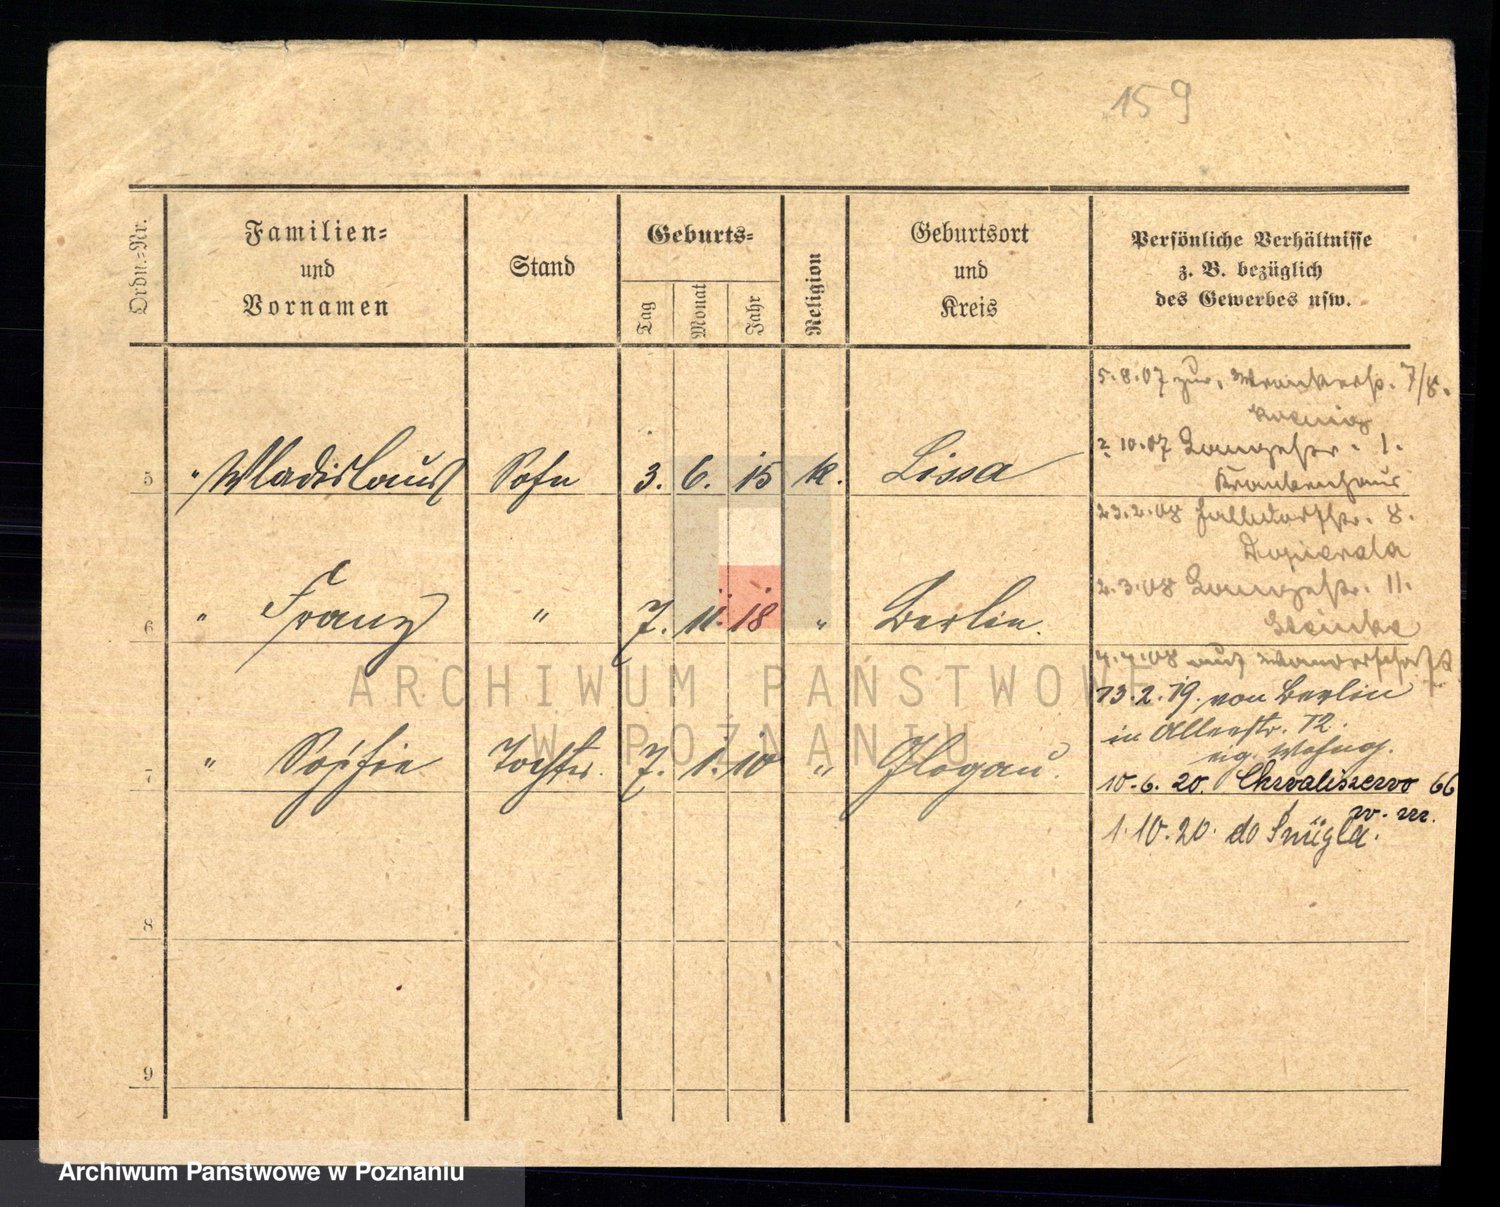 159
Ordn.-Nr.
Familien-
und
Vornamen
Stand
Geburts-
Tag
Monat
Jahr
Religion
Geburtsort
und
Kreis
Persönliche Verhältnisse
z. B. bezüglich
des Gewerbes usw.
5.8.07 zur. 7/8.
2.10.07 Langestr. 1.
Krankenhaus
5 " Wladislaus Sohn 3. 6. 15 k. Lissa
23.2.08 8.
Dopierala
2.3.08 Langestr. 11.
6 " Franz " 7. 11. 18 " Berlin.
auf Wanderschaft
13.2.19. von Berlin
in Alleestr. 12.
eig. Wohng.
7 " Sophie Tochter. 7. 1. 10 " Glogau.
10.6.20. Chwaliszewo 66
w. m.
1.10.20. do Śmigla.
8
9
ARCHIWUM PAŃSTWOWE
W POZNANIU
Archiwum Państwowe w Poznaniu